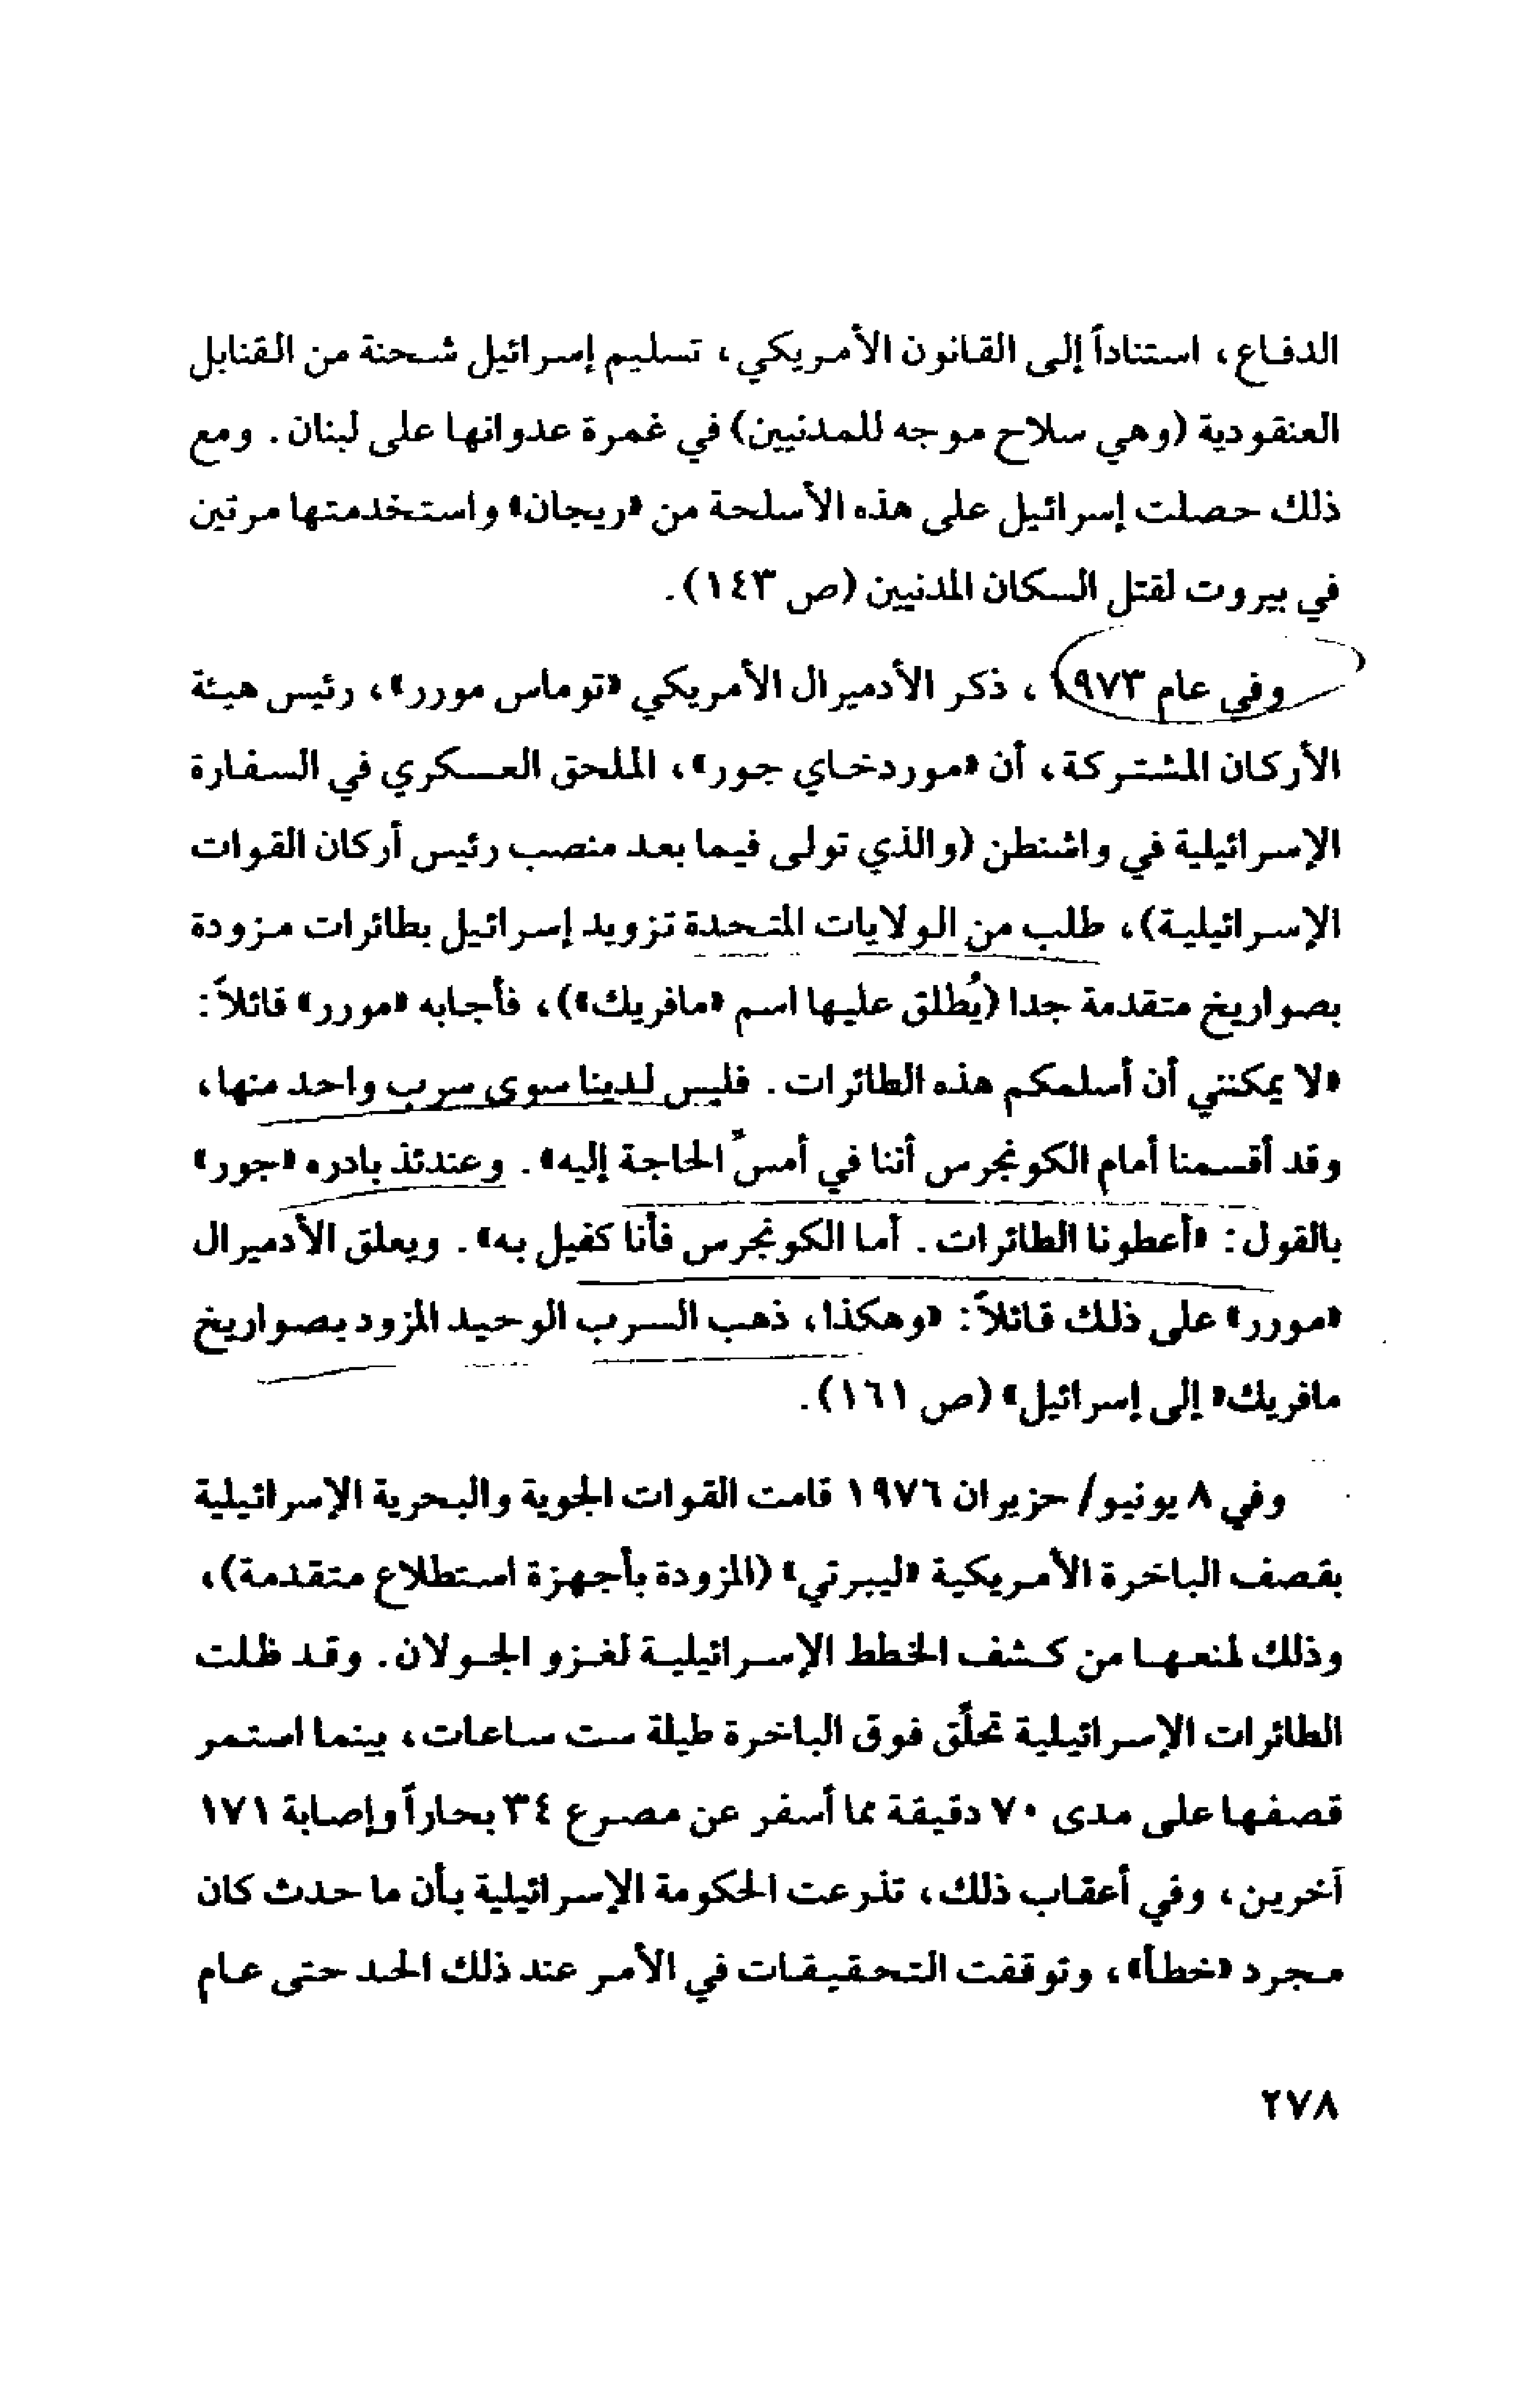 الدفاع، استناداً إلى القانون الأمريكي، تسليم إسرائيل شحنة من القنابل
العنقودية (وهي سلاح موجه للمدنيين) في غمرة عدوانها على لبنان. ومع
ذلك حصلت إسرائيل على هذه الأسلحة من «ريجان» واستخدمتها مرتين
في بيروت لقتل السكان المدنيين (ص ١٤٣).
وفي عام ١٩٧٣، ذكر الأدميرال الأمريكي «توماس مورر»، رئيس هيئة
الأركان المشتركة، أن «موردخاي جور»، الملحق العسكري في السفارة
الإسرائيلية في واشنطن (والذي تولى فيما بعد منصب رئيس أركان القوات
الإسرائيلية)، طلب من الولايات المتحدة تزويد إسرائيل بطائرات مزودة
بصواريخ متقدمة جدا (يُطلق عليها اسم «مافريك»)، فأجابه «مورر» قائلاً:
«لا يمكنني أن أسلمكم هذه الطائرات. فليس لدينا سوى سرب واحد منها،
وقد أقسمنا أمام الكونجرس أننا في أمسّ الحاجة إليه». وعندئذ بادره «جور»
بالقول: «أعطونا الطائرات. أما الكونجرس فأنا كفيل به». ويعلق الأدميرال
«مورر» على ذلك قائلاً: «وهكذا، ذهب السرب الوحيد المزود بصواريخ
مافريك» إلى إسرائيل» (ص ١٦١).
وفي ٨ يونيو/ حزيران ١٩٧٦ قامت القوات الجوية والبحرية الإسرائيلية
بقصف الباخرة الأمريكية «ليبرتي» (المزودة بأجهزة استطلاع متقدمة)،
وذلك لمنعها من كشف الخطط الإسرائيلية لغزو الجولان. وقد ظلت
الطائرات الإسرائيلية تحلّق فوق الباخرة طيلة ست ساعات، بينما استمر
قصفها على مدى ٧٠ دقيقة مما أسفر عن مصرع ٣٤ بحاراً وإصابة ١٧١
آخرين، وفي أعقاب ذلك، تذرعت الحكومة الإسرائيلية بأن ما حدث كان
مجرد «خطأ»، وتوقفت التحقيقات في الأمر عند ذلك الحد حتى عام
٢٧٨